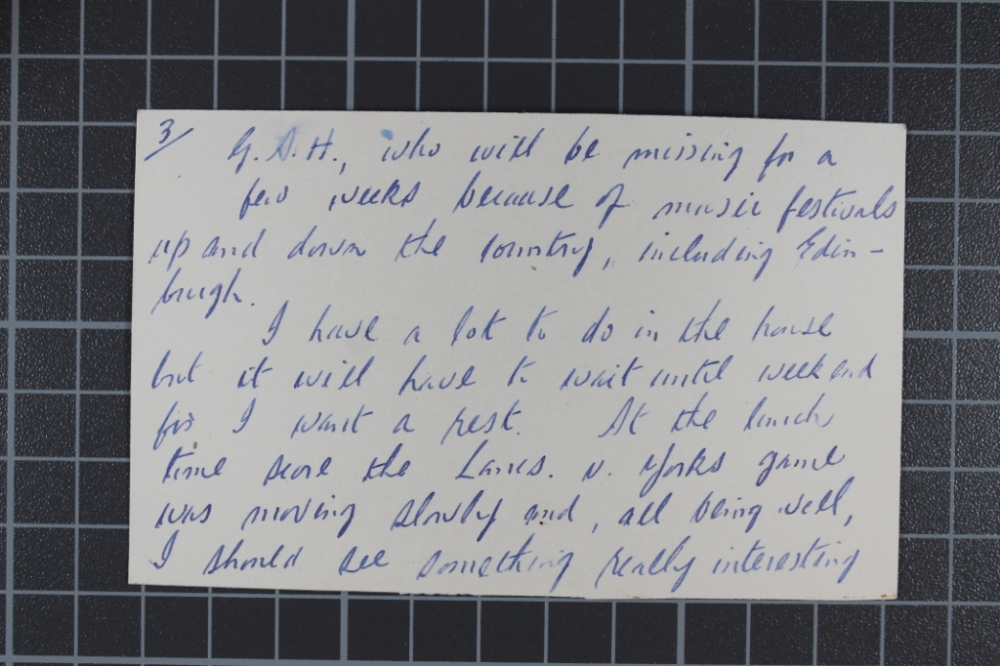 3/
G.D.H., who will be missing for a
few weeks because of music festivals
up and down the country, including Edin-
burgh.
I have a lot to do in the house
but it will have to wait until weekend
for I want a rest. At the lunch
time score the Lancs. v. Yorks game
was moving slowly and, all being well,
I should see something really interesting